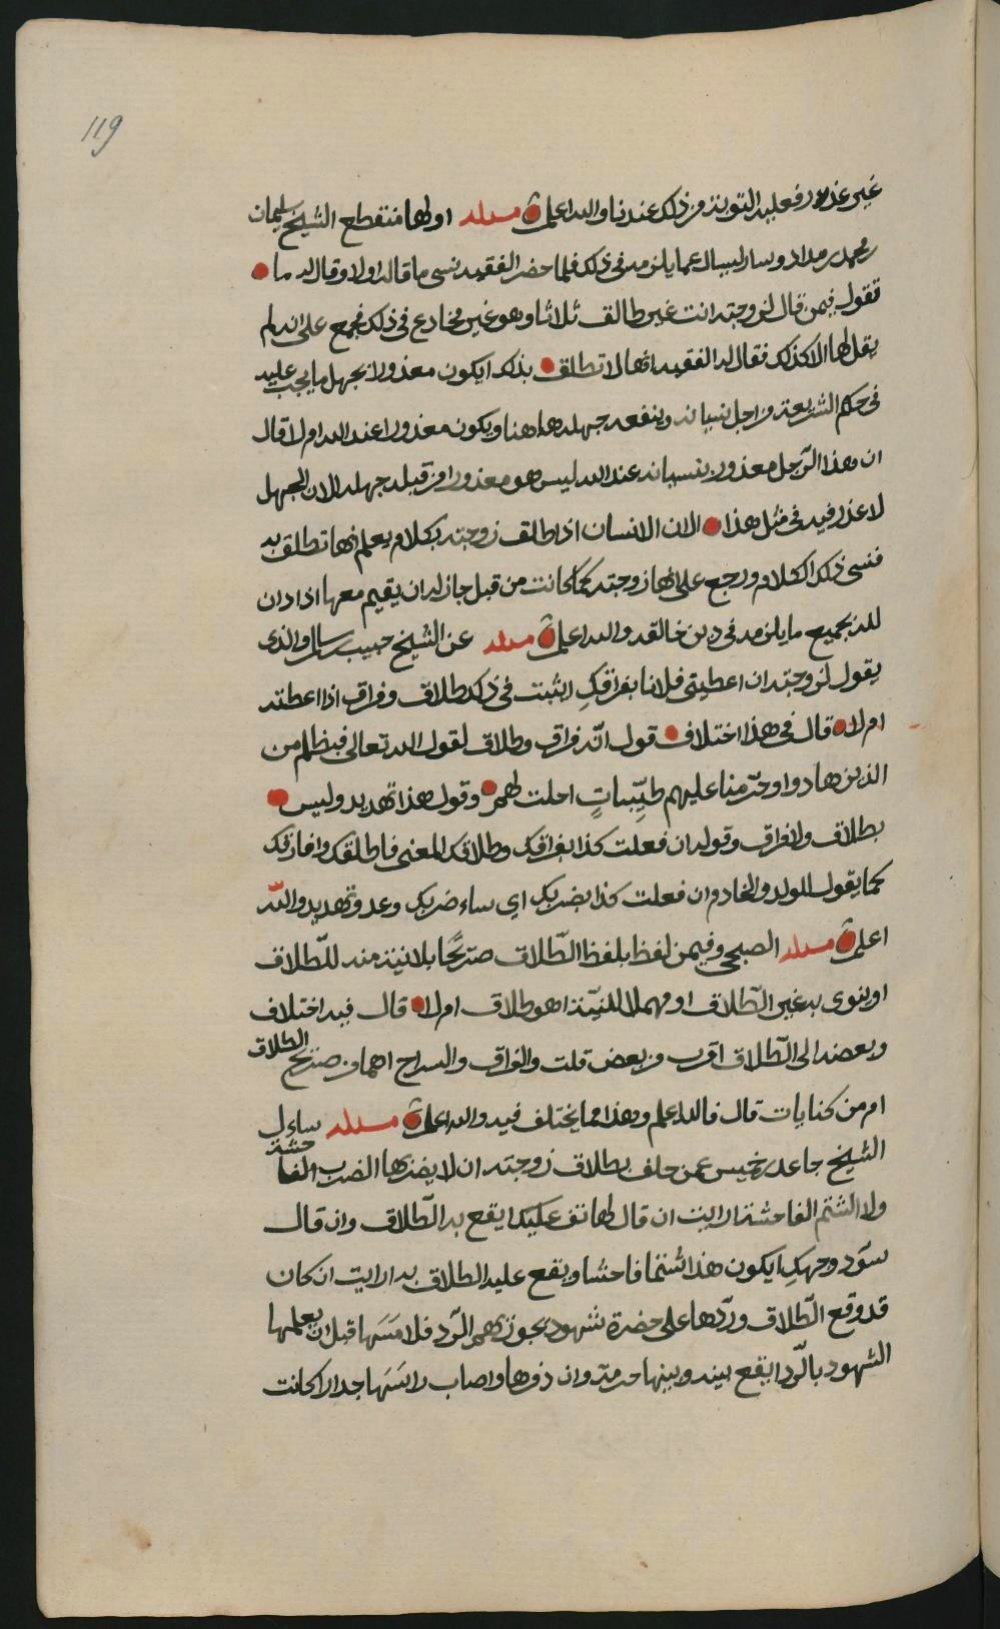 119
غير عذر فعليه التوبة من ذلك عندنا والله اعلم مسئلة اولها منقطع الشيخ سليمان
بن محمد بن مداد وسار ليسال عما يلزمه في ذلك فلما حضر الفقيه نسي ما قاله اولا وقال له ما
تقول فيمن قال لزوجته انت غير طالق ثلاثا وهو غير مخادع في ذلك مجمع على انه لم
يقل لها الا كذلك فقال له الفقيه انها لا تطلق بذلك ايكون معذورا بجهل ما يجب عليه
في حكم الشريعة من اجل نسيانه وينفعه جهله هاهنا ويكون معذورا عند الله ام لا قال
ان هذا الرّجل معذور بنسيانه عند الله ليس هو معذورا من قبله جهله لان الجهل
لا عذر فيه في مثل هذا الا ان الانسان اذا طلق زوجته بكلام يعلم انها تطلق به
فنسي ذلك الكلام ورجع على انها زوجته كما كانت من قبل جاز له ان يقيم معها اذا دان
لله بجميع ما يلزمه في دين خالقه والله اعلم مسئلة عن الشيخ حبيب بن سالم والذي
يقول لزوجته ان اعطيتي فلانا بفراقكِ ايثبت في ذلك طلاق وفراق اذا اعطته
ام لا قال في هذا اختلاف قول انّه فراق وطلاق لقول الله تعالى فبظلم من
الذين هادوا وحرّمنا عليهم طيّباتٍ احلت لهم وقول هذا تهديد وليس
بطلاق ولا فراق وقوله ان فعلت كذا بفراقك وطلاقك المعنى فاطلقك وافارقك
كما يقول للولد والخادم ان فعلت كذا بضربك اي ساء ضربك وعد وتهديد والله
اعلم مسئلة الصبحي وفيمن لفظ بلفظ الطّلاق صريحًا بلا نية منه للطّلاق
او ينوي به غير الطّلاق او مهملا للنيّة اهو طلاق ام لا قال فيه اختلاف
وبعضه الى الطّلاق اقرب من بعض قلت والفراق والسراح اهما من صريح الطلاق
ام من كنايات قال فالله اعلم وهذا مما يختلف فيه والله اعلم مسئلة سائل
الشيخ جاعد بن خميس عمن حلف بطلاق زوجته ان لا يضربها الضرب الفاحشة
ولا الشتم الفاحشة ارايت ان قال لها تف عليك ايقع به الطّلاق وان قال
سوّد وجهكِ ايكون هذا شتما فاحشا ويقع عليه الطلاق به ارايت ان كان
قد وقع الطّلاق وردّها على حضرة شهود يجوز بهم الرّد فلامَسَها قبل ان يعلمها
الشهود بالرّد ايقع بينه وبينها حرمة وان دفرها واصاب راسَها جدارا كانت